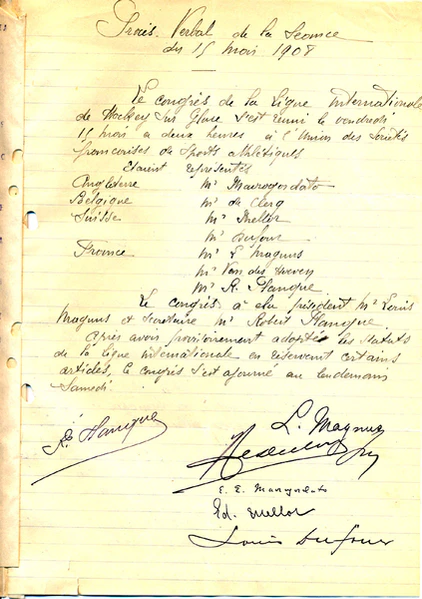 Procès Verbal de la Seance
du 15 mai 1908
Le congrès de la Ligue Internationale
de Hockey sur Glace s'est réuni le vendredi
15 mai a deux heures à l'Union des Sociétés
francaises de Sports athlétiques
Etaient représentés
Angleterre Mr Mavrogordato
Belgique Mr de Clerq
Suisse Mr Mellor
Mr Dufour
France Mr L Magnus
Mr Van der
Mr R. Planque.
Le congrès a élu président Mr Louis
Magnus et secretaire Mr Robert Planque.
Après avoir provisoirement adopté les statuts
de la Ligue internationale en réservant certains
articles, le congrès s'est ajourné au lendemain
Samedi
R. Planque
L. Magnus
E. E. Mavrogordato
Ed. Mellor
Louis Dufour